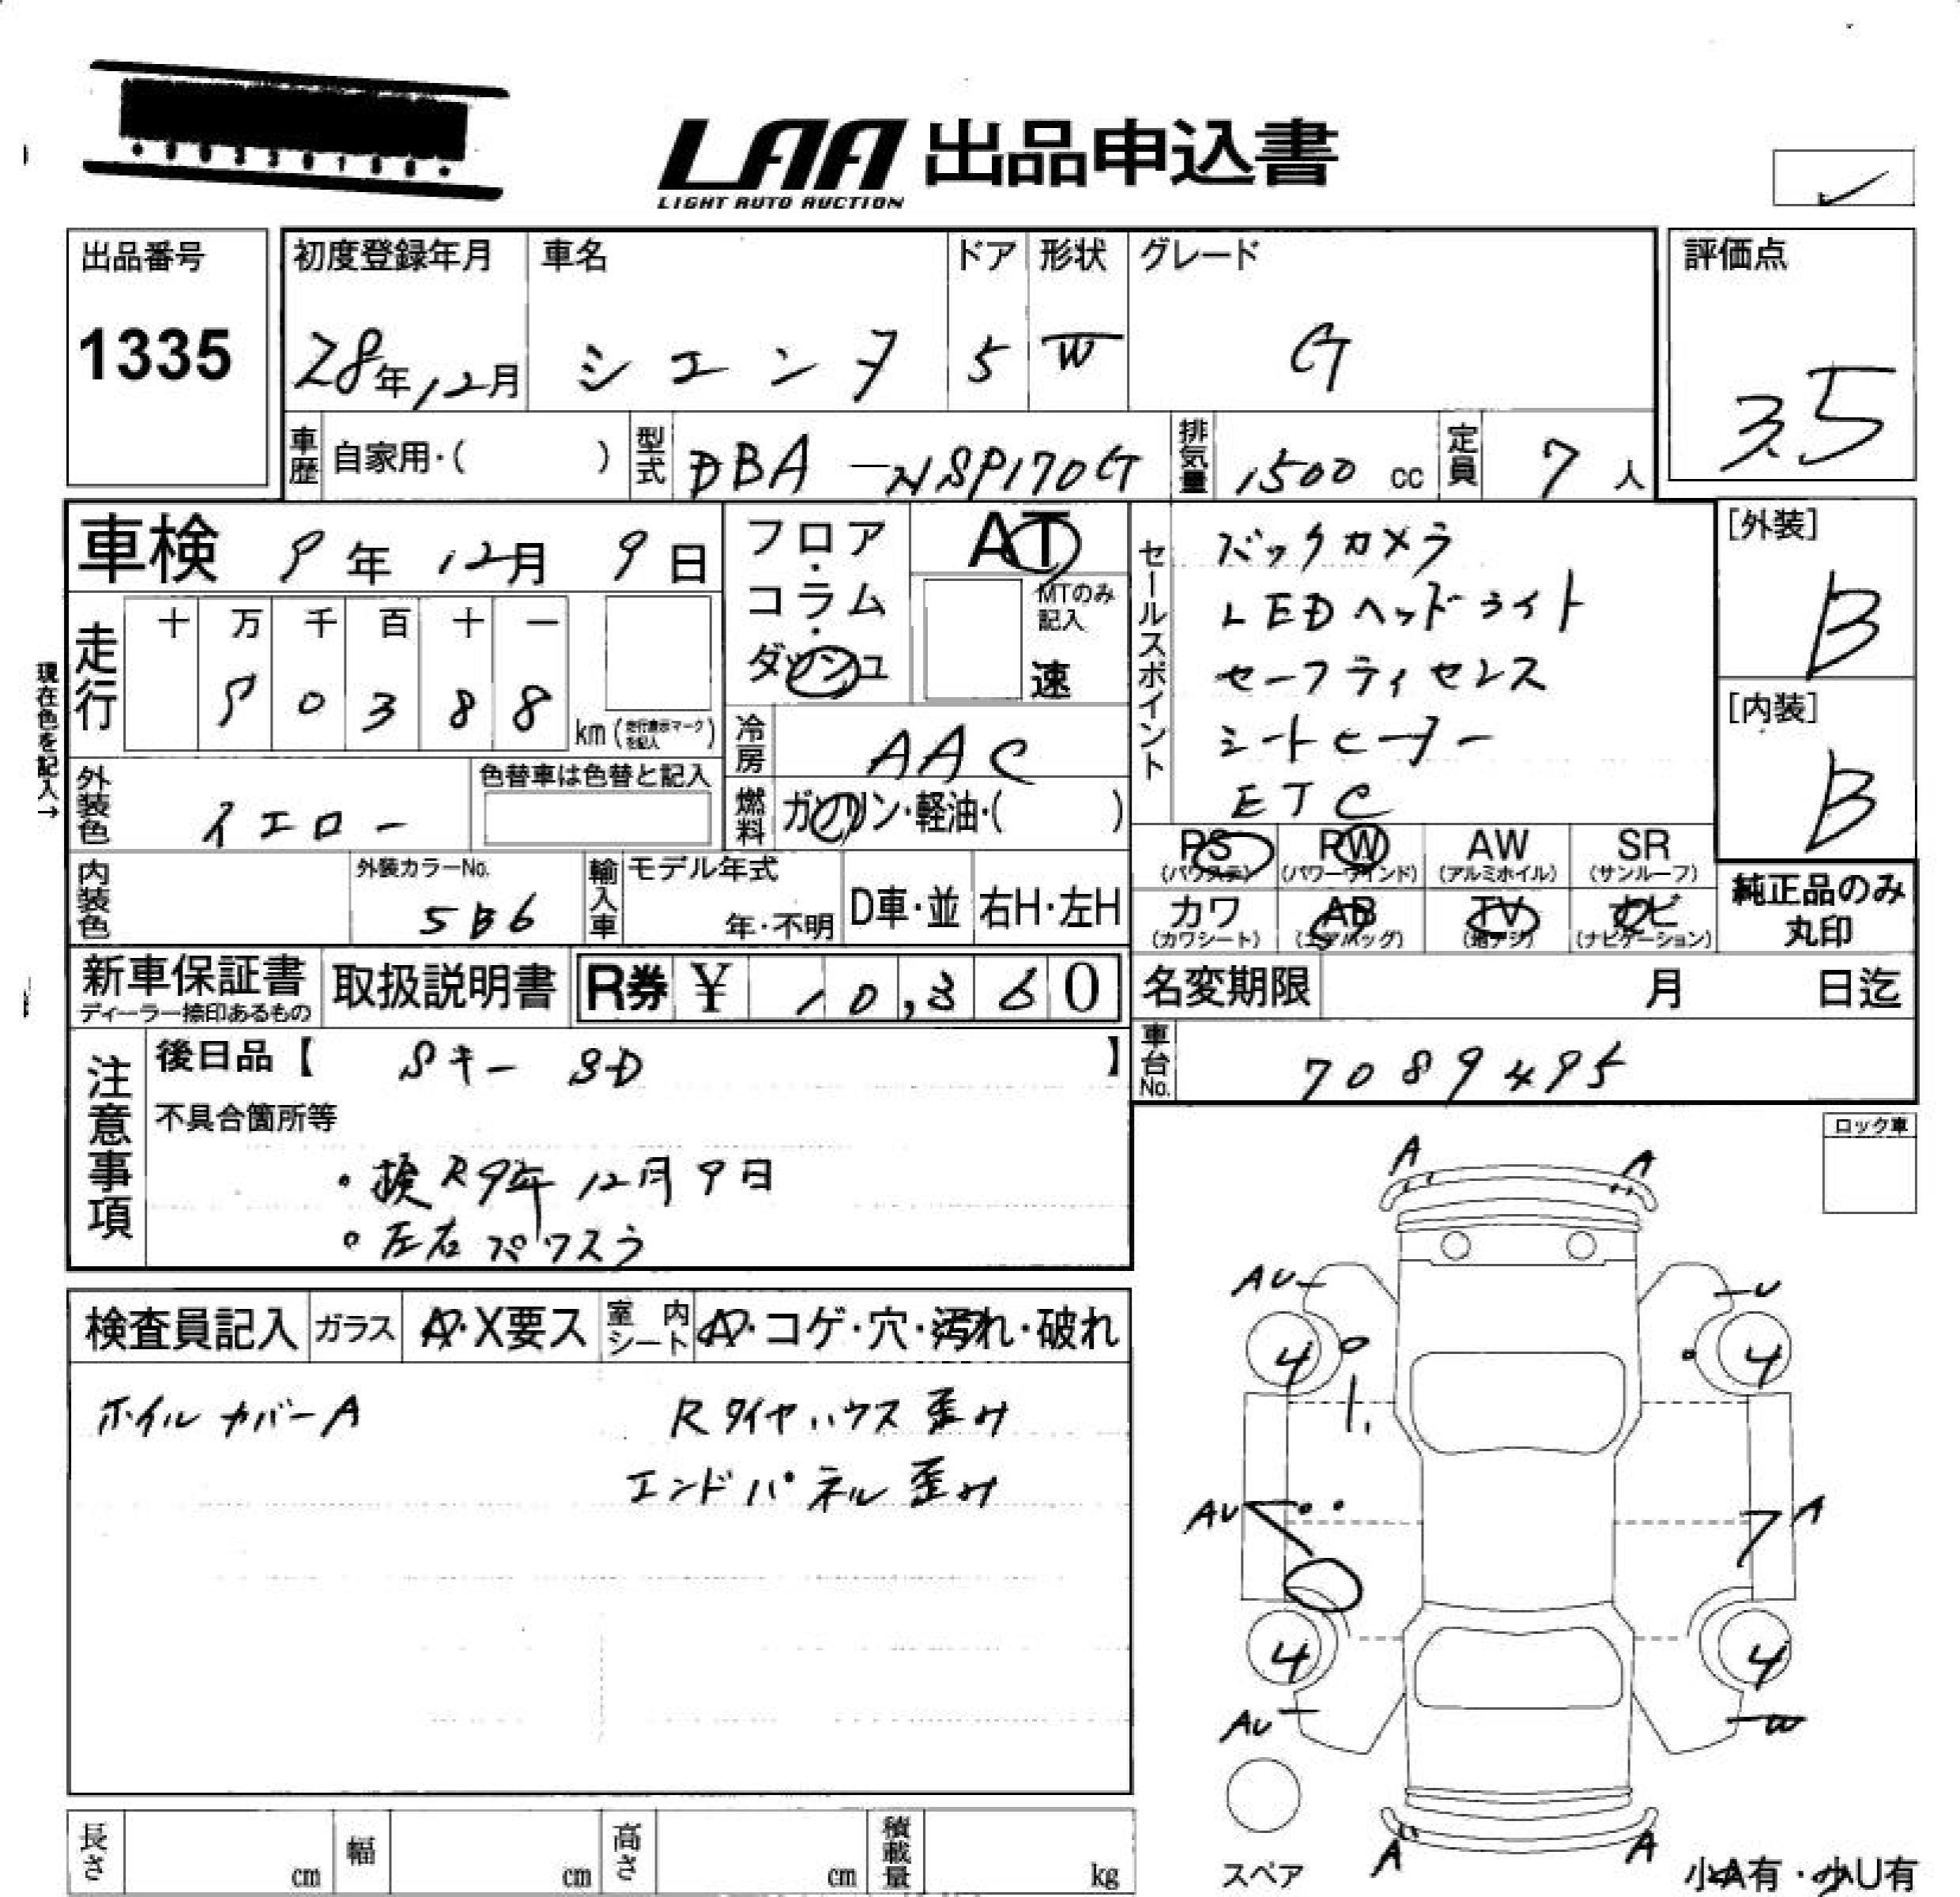 LAA 出品申込書
LIGHT AUTO AUCTION
出品番号
1335
初度登録年月
28年12月
車名
シエンタ
ドア
5
形状
W
グレード
G
評価点
3.5
車歴 自家用・( )
型式 DBA-NSP170G
排気量 1500 cc
定員 7人
車検 9年12月9日
フロア・コラム・ダッシュ
AT
MTのみ記入
速
走行
十 万 千 百 十 一
5 0 3 8 8
km (走行表示マークを記入)
現在色を記入→
冷房 AAC
燃料 ガソリン・軽油・( )
外装色 イエロー
色替車は色替と記入
内装色
外装カラーNo.
5B6
輸入車
モデル年式
年・不明
D車・並
右H・左H
セールスポイント
バックカメラ
LEDヘッドライト
セーフティセンス
シートヒーター
ETC
[外装]
B
[内装]
B
PS (パワステ)
PW (パワーウインド)
AW (アルミホイル)
SR (サンルーフ)
カワ (カワシート)
AB (エアバッグ)
TV (地デジ)
ナビ (ナビゲーション)
純正品のみ丸印
新車保証書
ディーラー捺印あるもの
取扱説明書
R券 ¥ 10,360
名変期限 月 日迄
車台No. 7089495
注意事項
後日品【 Sキー SD 】
不具合箇所等
・検R9年12月9日
・左右パワスラ
ロック車
検査員記入
ガラス A・X要ス
室内シート A・コゲ・穴・汚れ・破れ
ホイルカバーA
Rタイヤハウス歪み
エンドパネル歪み
A A
AU U
4 4
AU A
4 4
AU W
A A
スペア
小A有・小U有
長さ cm
幅 cm
高さ cm
積載量 kg